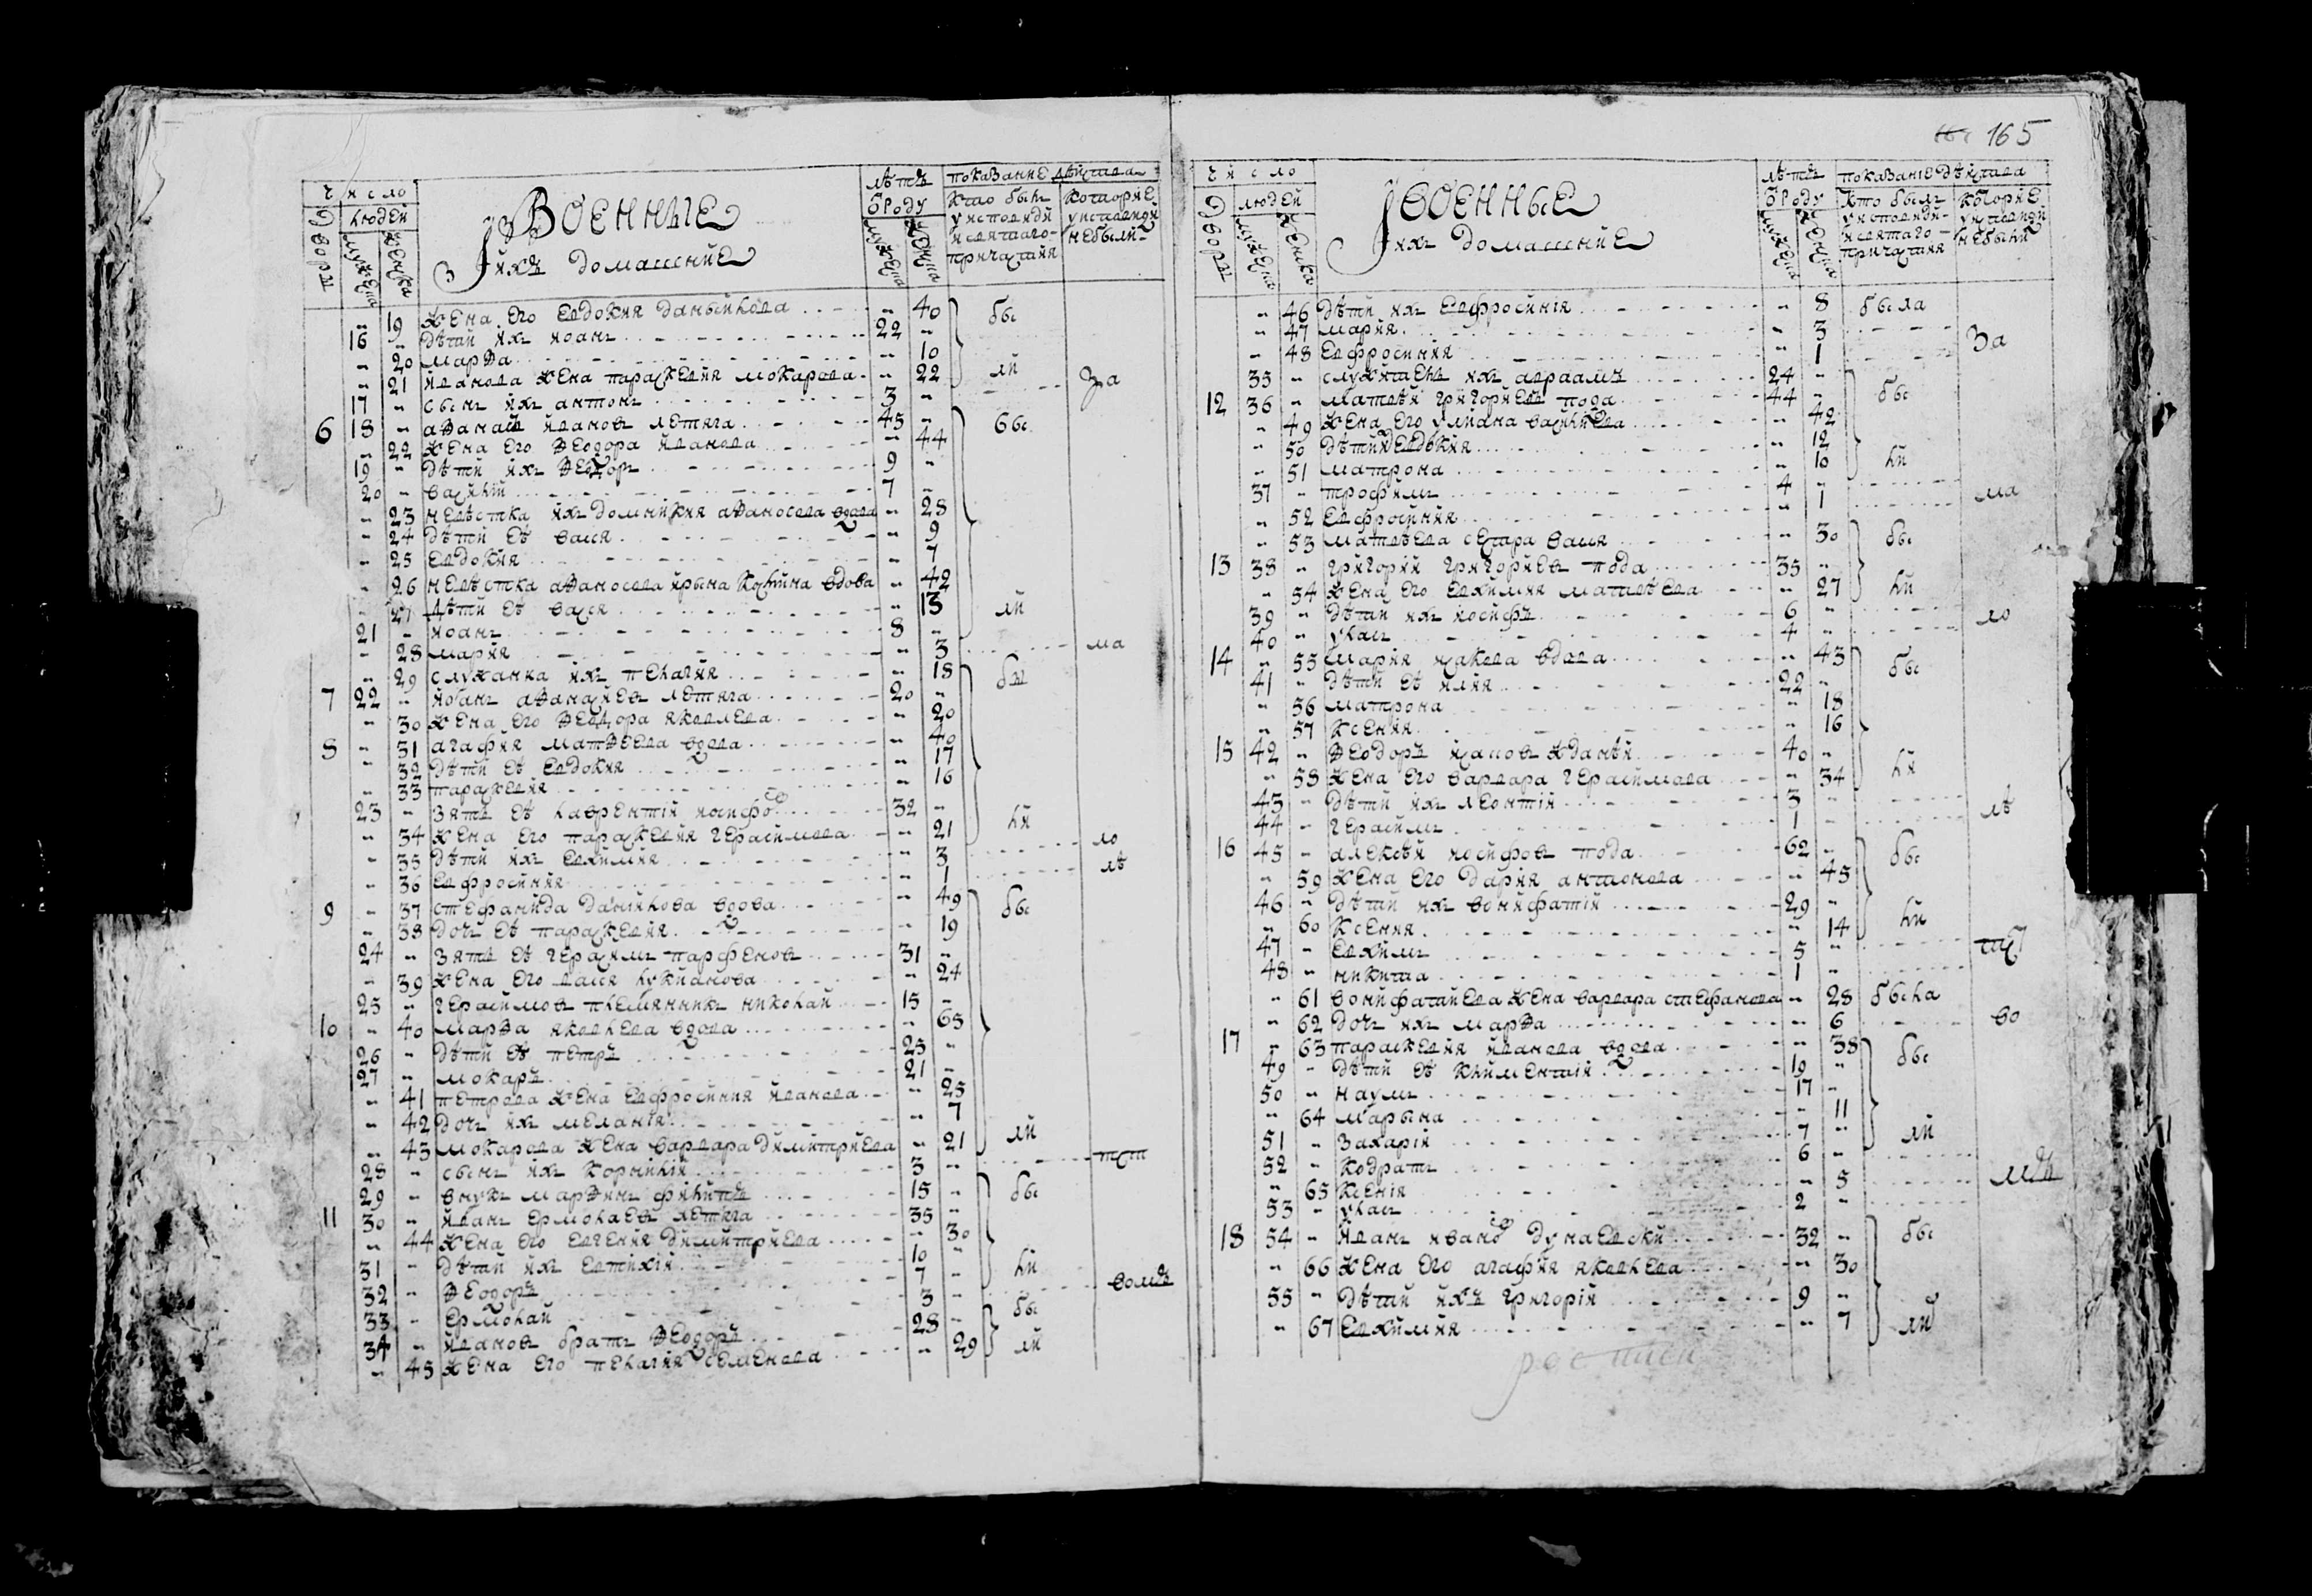 165
число
людей
Дворы
мужеска
женска
Военные
и ихъ домашние
лѣтъ
ѿ роду
мужеска
женска
показание действа
кто былъ
у исповѣди
и святаго
причастия
которие
у исповѣди
небыли
19 жена его евдокия данылкова 40 бы
16 дѣти ихъ иоанъ 22
20 марѳа 10
21 иванова жена параскевия мокарова 22 ли
17 сынъ ихъ антонъ 3 за
6 18 аѳанасѣ ивановъ летяга 45 бы
22 жена его ѳеодора иванова 44
19 дѣти ихъ ѳеодоръ 9
20 василий 7
23 невѣстка ихъ домникия аѳаносова вдова 28
24 дѣти еѣ васся 9
25 евдокия 7
26 невѣстка аѳаносова ирына костина вдова 42
27 дѣти еѣ васся 13 ли
21 иоанъ 8
28 мария 3 ма
29 служанка ихъ пелагия 18 бы
7 22 иоанъ аѳанасиевъ летяга 20
30 жена его ѳеодора яковлева 20
8 31 агафия матѳеева вдова 40
32 дѣти еѣ евдокия 17
33 параскевия 16
23 зять еѣ лаврентий иосифов 32
34 жена его параскевия герасимова 21 ли
35 дѣти ихъ евхимия 3 ло
36 евфросиния 1 лѣ
9 37 стефанида данилкова вдова 49 бы
38 дочъ еѣ параскевия 19
24 зять еѣ герасимъ парфеновъ 31
39 жена его васся лукиянова 24
25 герасимовъ племянникъ николай 15
10 40 марѳа яковлева вдова 65
26 дѣти еѣ петръ 25
27 мокаръ 21
41 петрова жена евфросиния иванова 25
42 дочъ ихъ меланія 7
43 мокарова жена варвара димитриева 21 ли
28 сынъ ихъ корнилий 3
29 внукъ марѳинъ филипъ 15 бы
11 30 иванъ ермолаевъ летяга 35
44 жена его евгения димитриева 30
31 дѣти ихъ евтихий 10 ли
32 ѳеодоръ 7
33 ермолай 3
34 ивановъ братъ ѳеодоръ 28 бы
45 жена его пелагия семенова 29 ли
число
людей
Дворы
мужеска
женска
Военные
и ихъ домашние
лѣтъ
ѿ роду
мужеска
женска
показание дѣйства
кто былъ
у исповѣди
и святаго
причастия
которие
у исповѣди
небыли
46 дѣти ихъ евфросиния 8 была
47 мария 3
48 евфросиния 1 за
35 служитель ихъ авраамъ 24
12 36 матвѣй григориевъ пода 44 бы
49 жена его улиана василиева 42
50 дѣти ихъ евдокия 12
51 матрона 10 ли
37 трофимъ 4
52 евфросиния 1 ма
53 матвѣева сестра васся 30 бы
13 38 григорий григориевъ пода 35
54 жена его евхимия матвѣева 27 ли
39 дѣти ихъ иосифъ 6
40 улас 4 ло
14 55 мария исакова вдова 43 бы
41 дѣти еѣ илия 22
56 матрона 18
57 ксения 16
15 42 ѳеодоръ жданѣй 40
58 жена его варвара герасимова 34 ли
43 дѣти ихъ леонтій 3
44 герасимъ 1 лѣ
16 45 алексѣй иосифовъ пода 62 бы
59 жена его дария антонова 45
46 дѣти ихъ вонифатій 29
60 ксения 14 ли
47 евхимъ 5
48 никита 1
61 вонифатиева жена варвара стефанова 28 была
62 дочъ ихъ марѳа 6 во
17 63 параскевия иванова вдова 38 бы
49 дѣти еѣ климентій 19
50 наумъ 17
64 марына 11
51 захарій 7 ли
52 кодратъ 6
65 ксенія 5
53 улас 2
18 54 иванъ иванов дунаевски 32 бы
66 жена его агафия яковлева 30
55 дѣти ихъ григорій 9
67 евхимия 7 ли
росписи